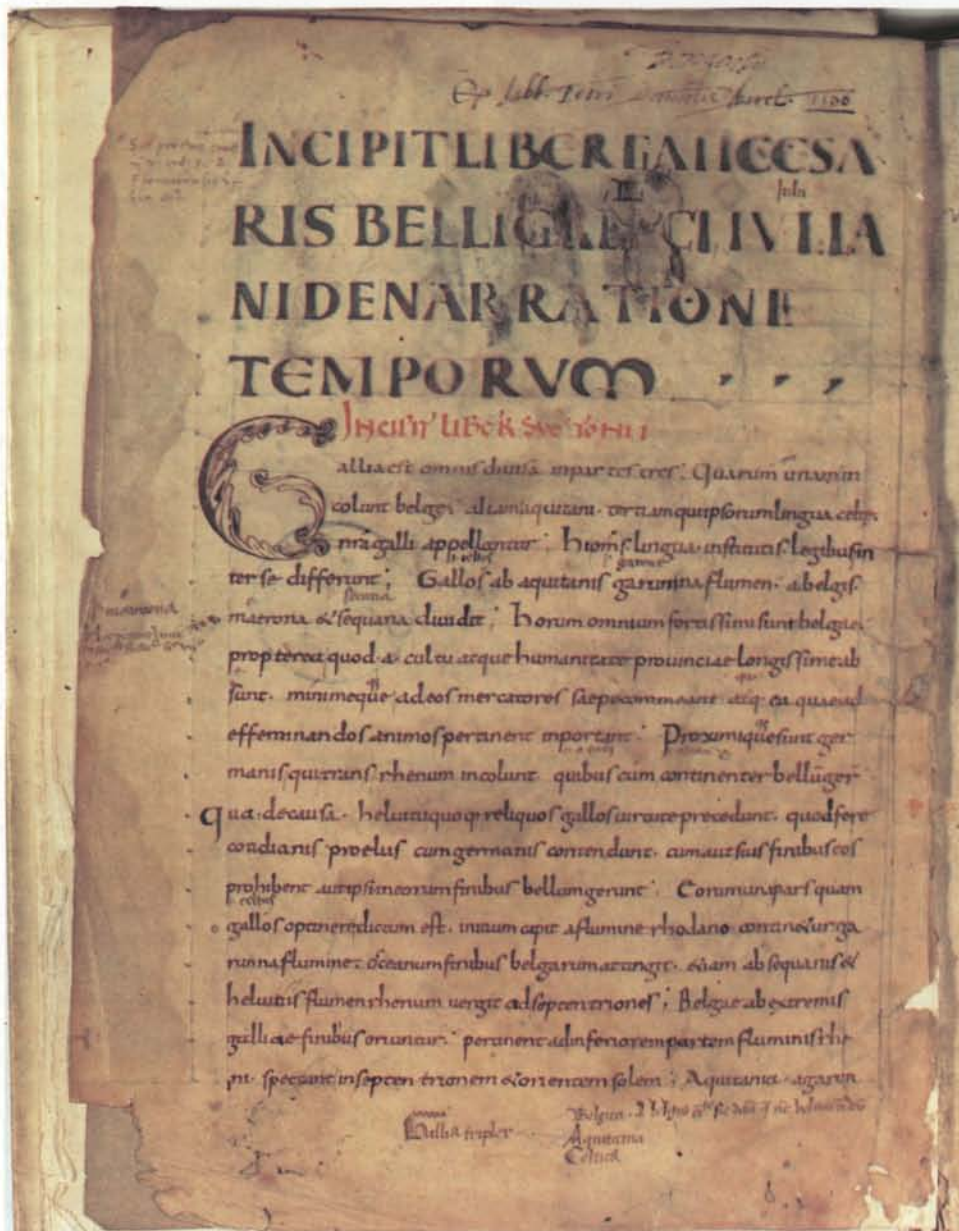 Ex libb. Petri Danielis Aurel. 1566
INCIPIT LIBER GAII CESA
RIS BELLI GALLICI IVLIA
NI DE NARRATIONE
TEMPORVM
INCIPIT LIBER SVETONII
Gallia est omnis diuisa in partes tres. Quarum unam in
colunt belgei aliam aquitani. tertiam qui ipsorum lingua celtę
nr̄a galli appellantur; hi om̄s lingua. institutis legibus in
ter se differunt; Gallos ab aquitanis garunna flumen. a belgis.
matrona & sequana diuidit; horum omnium fortissimi sunt belgae
propterea quod a cultu atque humanitate prouinciae longissime ab
sunt. minimeque ad eos mercatores saepe commeant atq. ea quae ad
effeminandos animos pertinent inportant. Proximique sunt ger
manis qui trans rhenum incolunt quibus cum continenter bellū ger̄
qua de causa. heluitii quoq. reliquos gallos uirtute precedunt. quod fere
cotidianis proeliis cum germanis contendunt. cum aut suis finibus eos
prohibent aut ipsi in eorum finibus bellum gerunt. Eorum una pars quam
gallos optinere dictum est. initium capit a flumine rhodano contin&ur ga
runna flumine. oceanum finibus belgarum attingit. &iam ab sequanis &
heluitiis flumen rhenum uergit ad septentriones; Belgae ab extremis
galliae finibus oriuntur. pertinent ad inferiorem partem fluminis rhe
ni. spectant in septentrionem & orientem solem; Aquitania. a garun
Gallia triplex
Belgica
Aquitania
Celtica